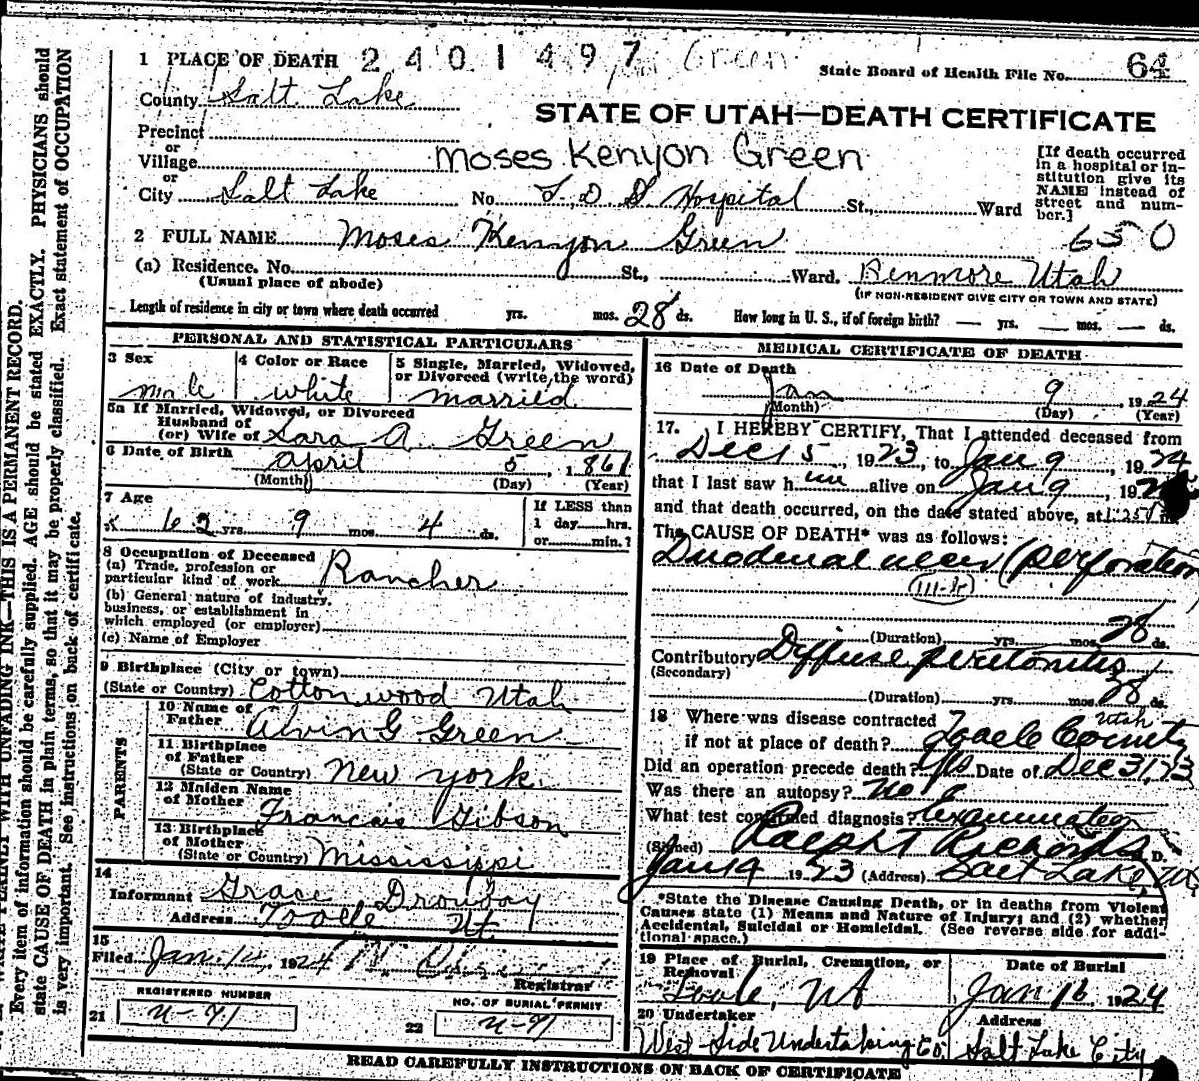 1 PLACE OF DEATH 2401497 Green State Board of Health File No. 64
County Salt Lake
STATE OF UTAH—DEATH CERTIFICATE
Precinct
or
Village
Moses Kenyon Green
or
City Salt Lake No. L.D.S Hospital St., Ward
[If death occurred
in a hospital or in-
stitution give its
NAME instead of
street and num-
ber.]
2 FULL NAME Moses Kenyon Green 650
(a) Residence. No. St., Ward. Benmore Utah
(Usual place of abode) (IF NON-RESIDENT GIVE CITY OR TOWN AND STATE)
Length of residence in city or town where death occurred yrs. mos. 28 ds. How long in U. S., if of foreign birth? — yrs. — mos. — ds.
PERSONAL AND STATISTICAL PARTICULARS
3 Sex
male
4 Color or Race
white
5 Single, Married, Widowed,
or Divorced (write the word)
married
5a If Married, Widowed, or Divorced
Husband of
(or) Wife of Sara A Green
6 Date of Birth
April 5, 1861
(Month) (Day) (Year)
7 Age
62 yrs. 9 mos. 4 ds.
If LESS than
1 day hrs.
or min.?
8 Occupation of Deceased
(a) Trade, profession or
particular kind of work Rancher
(b) General nature of industry,
business, or establishment in
which employed (or employer)
(c) Name of Employer
9 Birthplace (City or town)
(State or Country) Cottonwood Utah
PARENTS
10 Name of
Father Alvin G Green
11 Birthplace
of Father
(State or Country) New York
12 Maiden Name
of Mother Francais Gibson
13 Birthplace
of Mother
(State or Country) Mississippi
14
Informant Grace Droubay
Address Tooele Ut.
15
Filed Jan. 14, 1924
Registrar
REGISTERED NUMBER
21 U-71
NO. OF BURIAL PERMIT
22 U-71
MEDICAL CERTIFICATE OF DEATH
16 Date of Death
Jan 9, 1924
(Month) (Day) (Year)
17. I HEREBY CERTIFY, That I attended deceased from
Dec 15, 1923, to Jan 9, 1924
that I last saw him alive on Jan 9, 192
and that death occurred, on the date stated above, at
The CAUSE OF DEATH* was as follows:
Duodenal ulcer (perforation)
(Duration) yrs. mos. 28 ds.
Contributory Diffuse peritonitis
(Secondary)
(Duration) yrs. mos. 28 ds.
18 Where was disease contracted Utah
if not at place of death? Tooele County
Did an operation precede death? Yes Date of Dec 31,
Was there an autopsy? no
What test confirmed diagnosis? Examination
(Signed) Ralph T Richards M. D.
Jan 14 1923 (Address) Salt Lake Ut
*State the Disease Causing Death, or in deaths from Violent
Causes state (1) Means and Nature of Injury; and (2) whether
Accidental, Suicidal or Homicidal. (See reverse side for addi-
tional space.)
19 Place of Burial, Cremation, or
Removal
Tooele, Ut
Date of Burial
Jan 16, 1924
20 Undertaker
West Side Undertaking Co.
Address
Salt Lake City
READ CAREFULLY INSTRUCTIONS ON BACK OF CERTIFICATE
WRITE PLAINLY WITH UNFADING INK—THIS IS A PERMANENT RECORD.
Every item of information should be carefully supplied. AGE should be stated EXACTLY. PHYSICIANS should
state CAUSE OF DEATH in plain terms, so that it may be properly classified. Exact statement of OCCUPATION
is very important. See instructions on back of certificate.